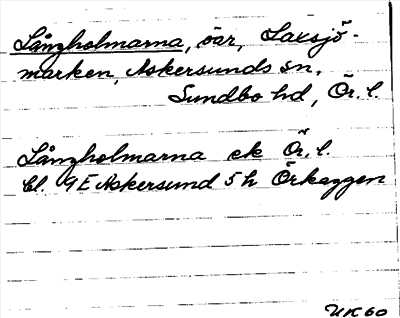 Långholmarna, öar, Laxsjö-
marken, Askersunds sn,
Sundbo hd, Ör. l.
Långholmarna ek Ör. l.
bl. 9E Askersund 5h Örkaggen
UK 60